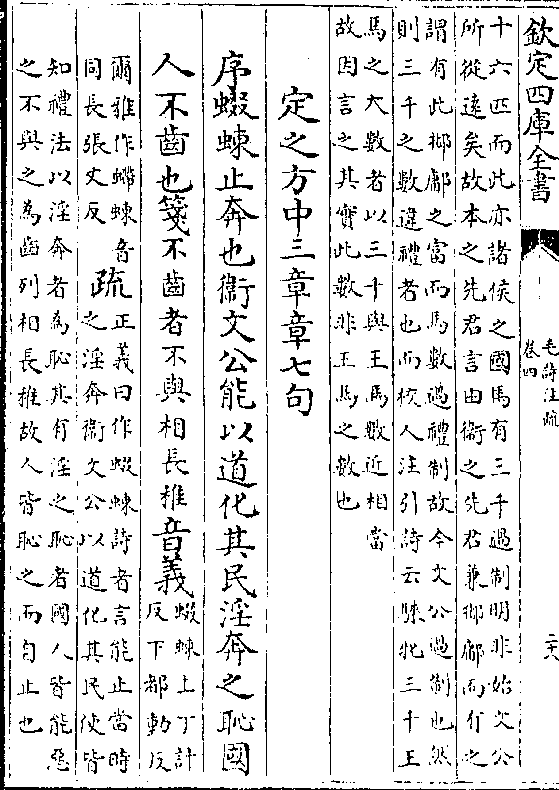 欽定四庫全書
毛詩注疏
卷四
二六
十六匹而此亦諸侯之國馬有三千過制明非始文公
所從遠矣故本之先君言由衛之先君兼邶鄘而有之
謂有此邶鄘之富而馬數過禮制故今文公過制也然
則三千之數違禮者也而校人注引詩云騋牝三千王
馬之大數者以三千與王馬數近相當
故因言之其實此數非王馬之數也
定之方中三章章七句
序蝃蝀止奔也衛文公能以道化其民淫奔之恥國
人不齒也箋不齒者不與相長稚音義
蝃蝀上丁計
反下都動反
爾雅作螮蝀音
同長張丈反
疏
正義曰作蝃蝀詩者言能止當時
之淫奔衛文公以道化其民使皆
知禮法以淫奔者為恥其有淫之恥者國人皆能惡
之不與之為齒列相長稚故人皆恥之而自止也